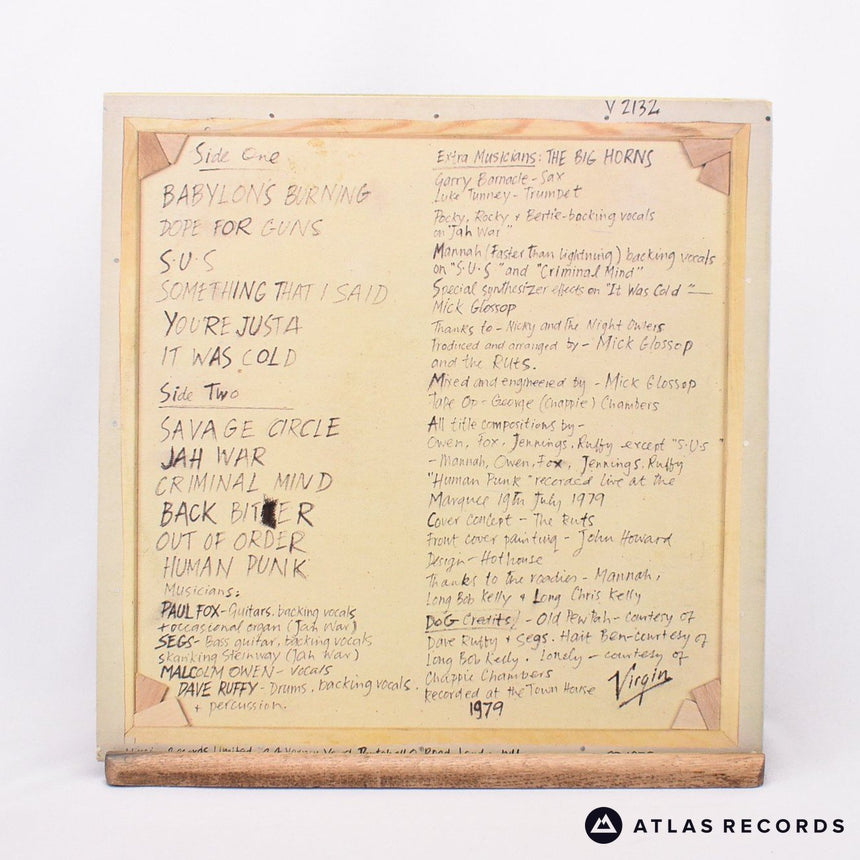 V 2132
Side One
BABYLON'S BURNING
DOPE FOR GUNS
S·U·S
SOMETHING THAT I SAID
YOU'RE JUST A
IT WAS COLD
Side Two
SAVAGE CIRCLE
JAH WAR
CRIMINAL MIND
BACK BITER
OUT OF ORDER
HUMAN PUNK
Musicians:
PAUL FOX-Guitars. backing vocals
+ occasional organ (Jah War)
SEGS- Bass guitar. backing vocals
skanking Steinway (Jah War)
MALCOLM OWEN- vocals
DAVE RUFFY- Drums. backing vocals.
+ percussion.
Extra Musicians: THE BIG HORNS
Garry Barnacle-Sax
Luke Tunney-Trumpet
Pocky, Rocky + Bertie-backing vocals
on "Jah War"
Mannah (Faster than lightning) backing vocals
on "S·U·S" and "Criminal Mind"
Special synthesizer effects on "It Was Cold"-
Mick Glossop
Thanks to - Nicky and the Night Owlers
Produced and arranged by - Mick Glossop
and the Ruts.
Mixed and engineered by - Mick Glossop
Tape Op - George (Chappie) Chambers
All title compositions by-
Owen, Fox, Jennings, Ruffy except "S·U·S"
- Mannah, Owen, Fox, Jennings, Ruffy
"Human Punk" recorded live at the
Marquee 19th July 1979
Cover concept - The Ruts
Front cover painting - John Howard
Design - Hothouse
Thanks to the roadies - Mannah,
Long Bob Kelly + Long Chris Kelly
DoG Credits! - Old Pew Tah- courtesy of
Dave Ruffy + Segs. Hait Ben-courtesy of
Long Bob Kelly. Lonely - courtesy of
Chappie Chambers
Recorded at the Town House
Virgin
1979
Records Limited, Road, London W11
ATLAS RECORDS